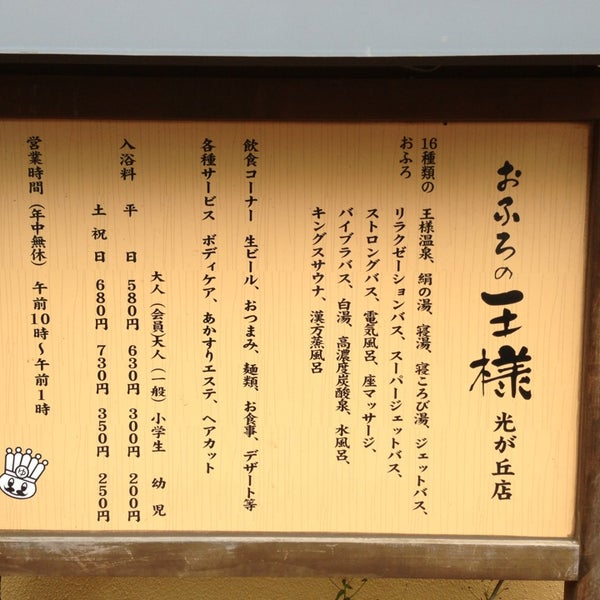 おふろの王様 光が丘店
16種類の
おふろ
王様温泉、絹の湯、寝湯、寝ころび湯、ジェットバス、
リラクゼーションバス、スーパージェットバス、
ストロングバス、電気風呂、座マッサージ、
バイブラバス、白湯、高濃度炭酸泉、水風呂、
キングスサウナ、漢方蒸風呂
飲食コーナー 生ビール、おつまみ、麺類、お食事、デザート等
各種サービス ボディケア、あかすりエステ、ヘアカット
大人(会員) 大人(一般) 小学生 幼児
入浴料 平日 580円 630円 300円 200円
土祝日 680円 730円 350円 250円
営業時間(年中無休) 午前10時〜午前1時
ゆ